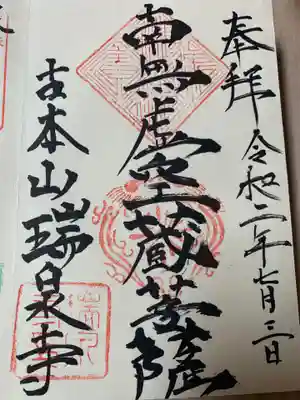 奉拝
令和二年七月三日
南無虚空蔵菩薩
古本山瑞泉寺